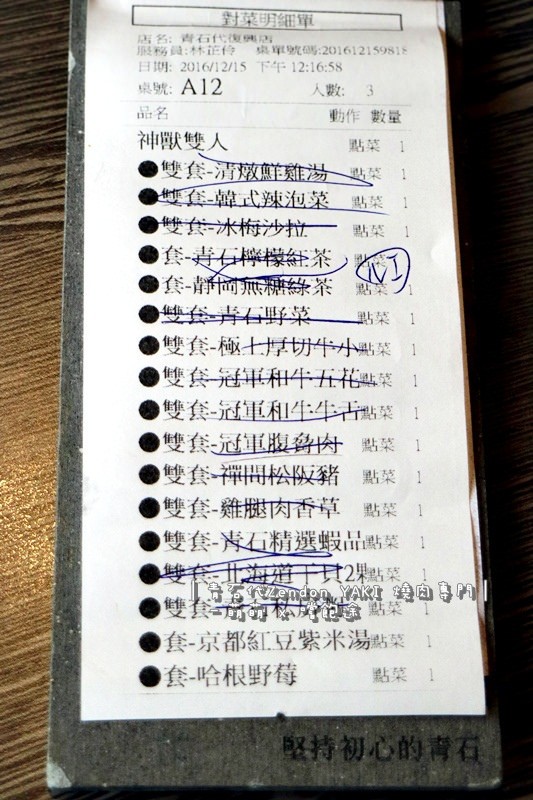 對菜明細單
店名: 青石代復興店
服務員:林芷伶 桌單號碼:201612159818
日期: 2016/12/15 下午 12:16:58
桌號: A12 人數: 3
品名 動作 數量
神獸雙人 點菜 1
●雙套-清燉鮮雞湯 點菜 1
●雙套-韓式辣泡菜 點菜 1
●雙套-冰梅沙拉 點菜 1
●套-青石檸檬紅茶 點菜
●套-靜岡無糖綠茶 點菜 1
●雙套-青石野菜 點菜 1
●雙套-極上厚切牛小 點菜 1
●雙套-冠軍和牛五花 點菜 1
●雙套-冠軍和牛牛舌 點菜 1
●雙套-冠軍腹脅肉 點菜 1
●雙套-禪問松阪豬 點菜 1
●雙套-雞腿肉香草 點菜 1
●雙套-青石精選蝦品 點菜 1
●雙套-北海道干貝2顆 點菜 1
|青石代Zendon YAKI 燒肉專門|
●雙套-青石私房 點菜 1
●套-京都紅豆紫米湯 點菜 1
●套-哈根野莓 點菜 1
堅持初心的青石